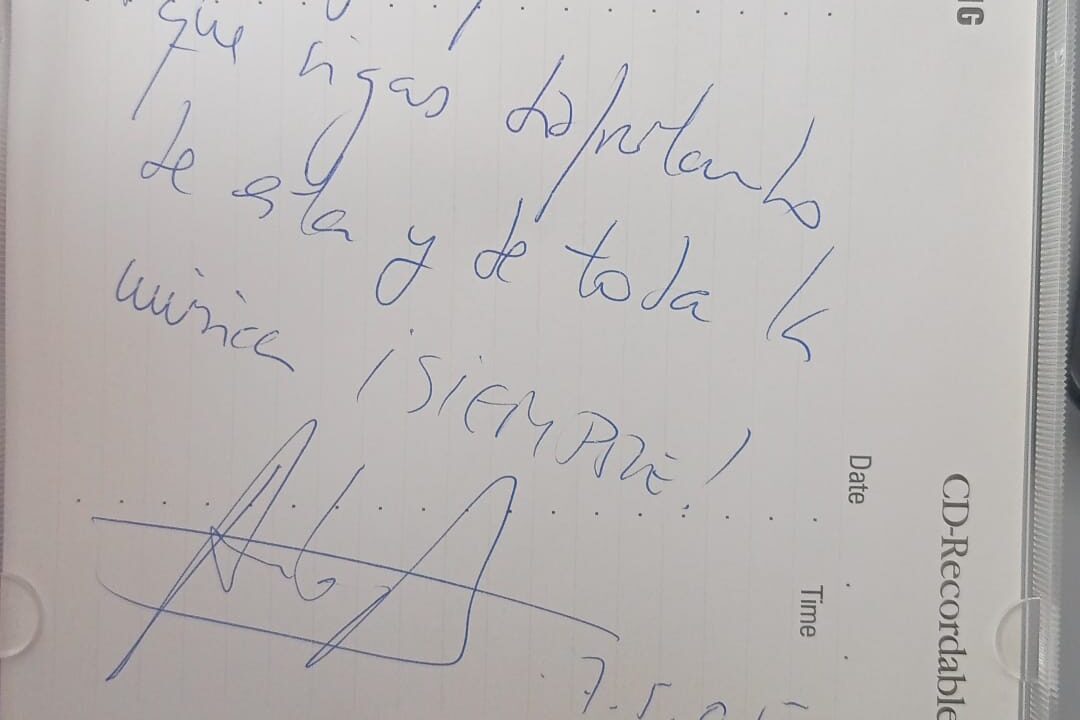 que sigas disfrutando
de esta y de toda la
música ¡SIEMPRE!
7.5.
NG
Date
Time
CD-Recordable